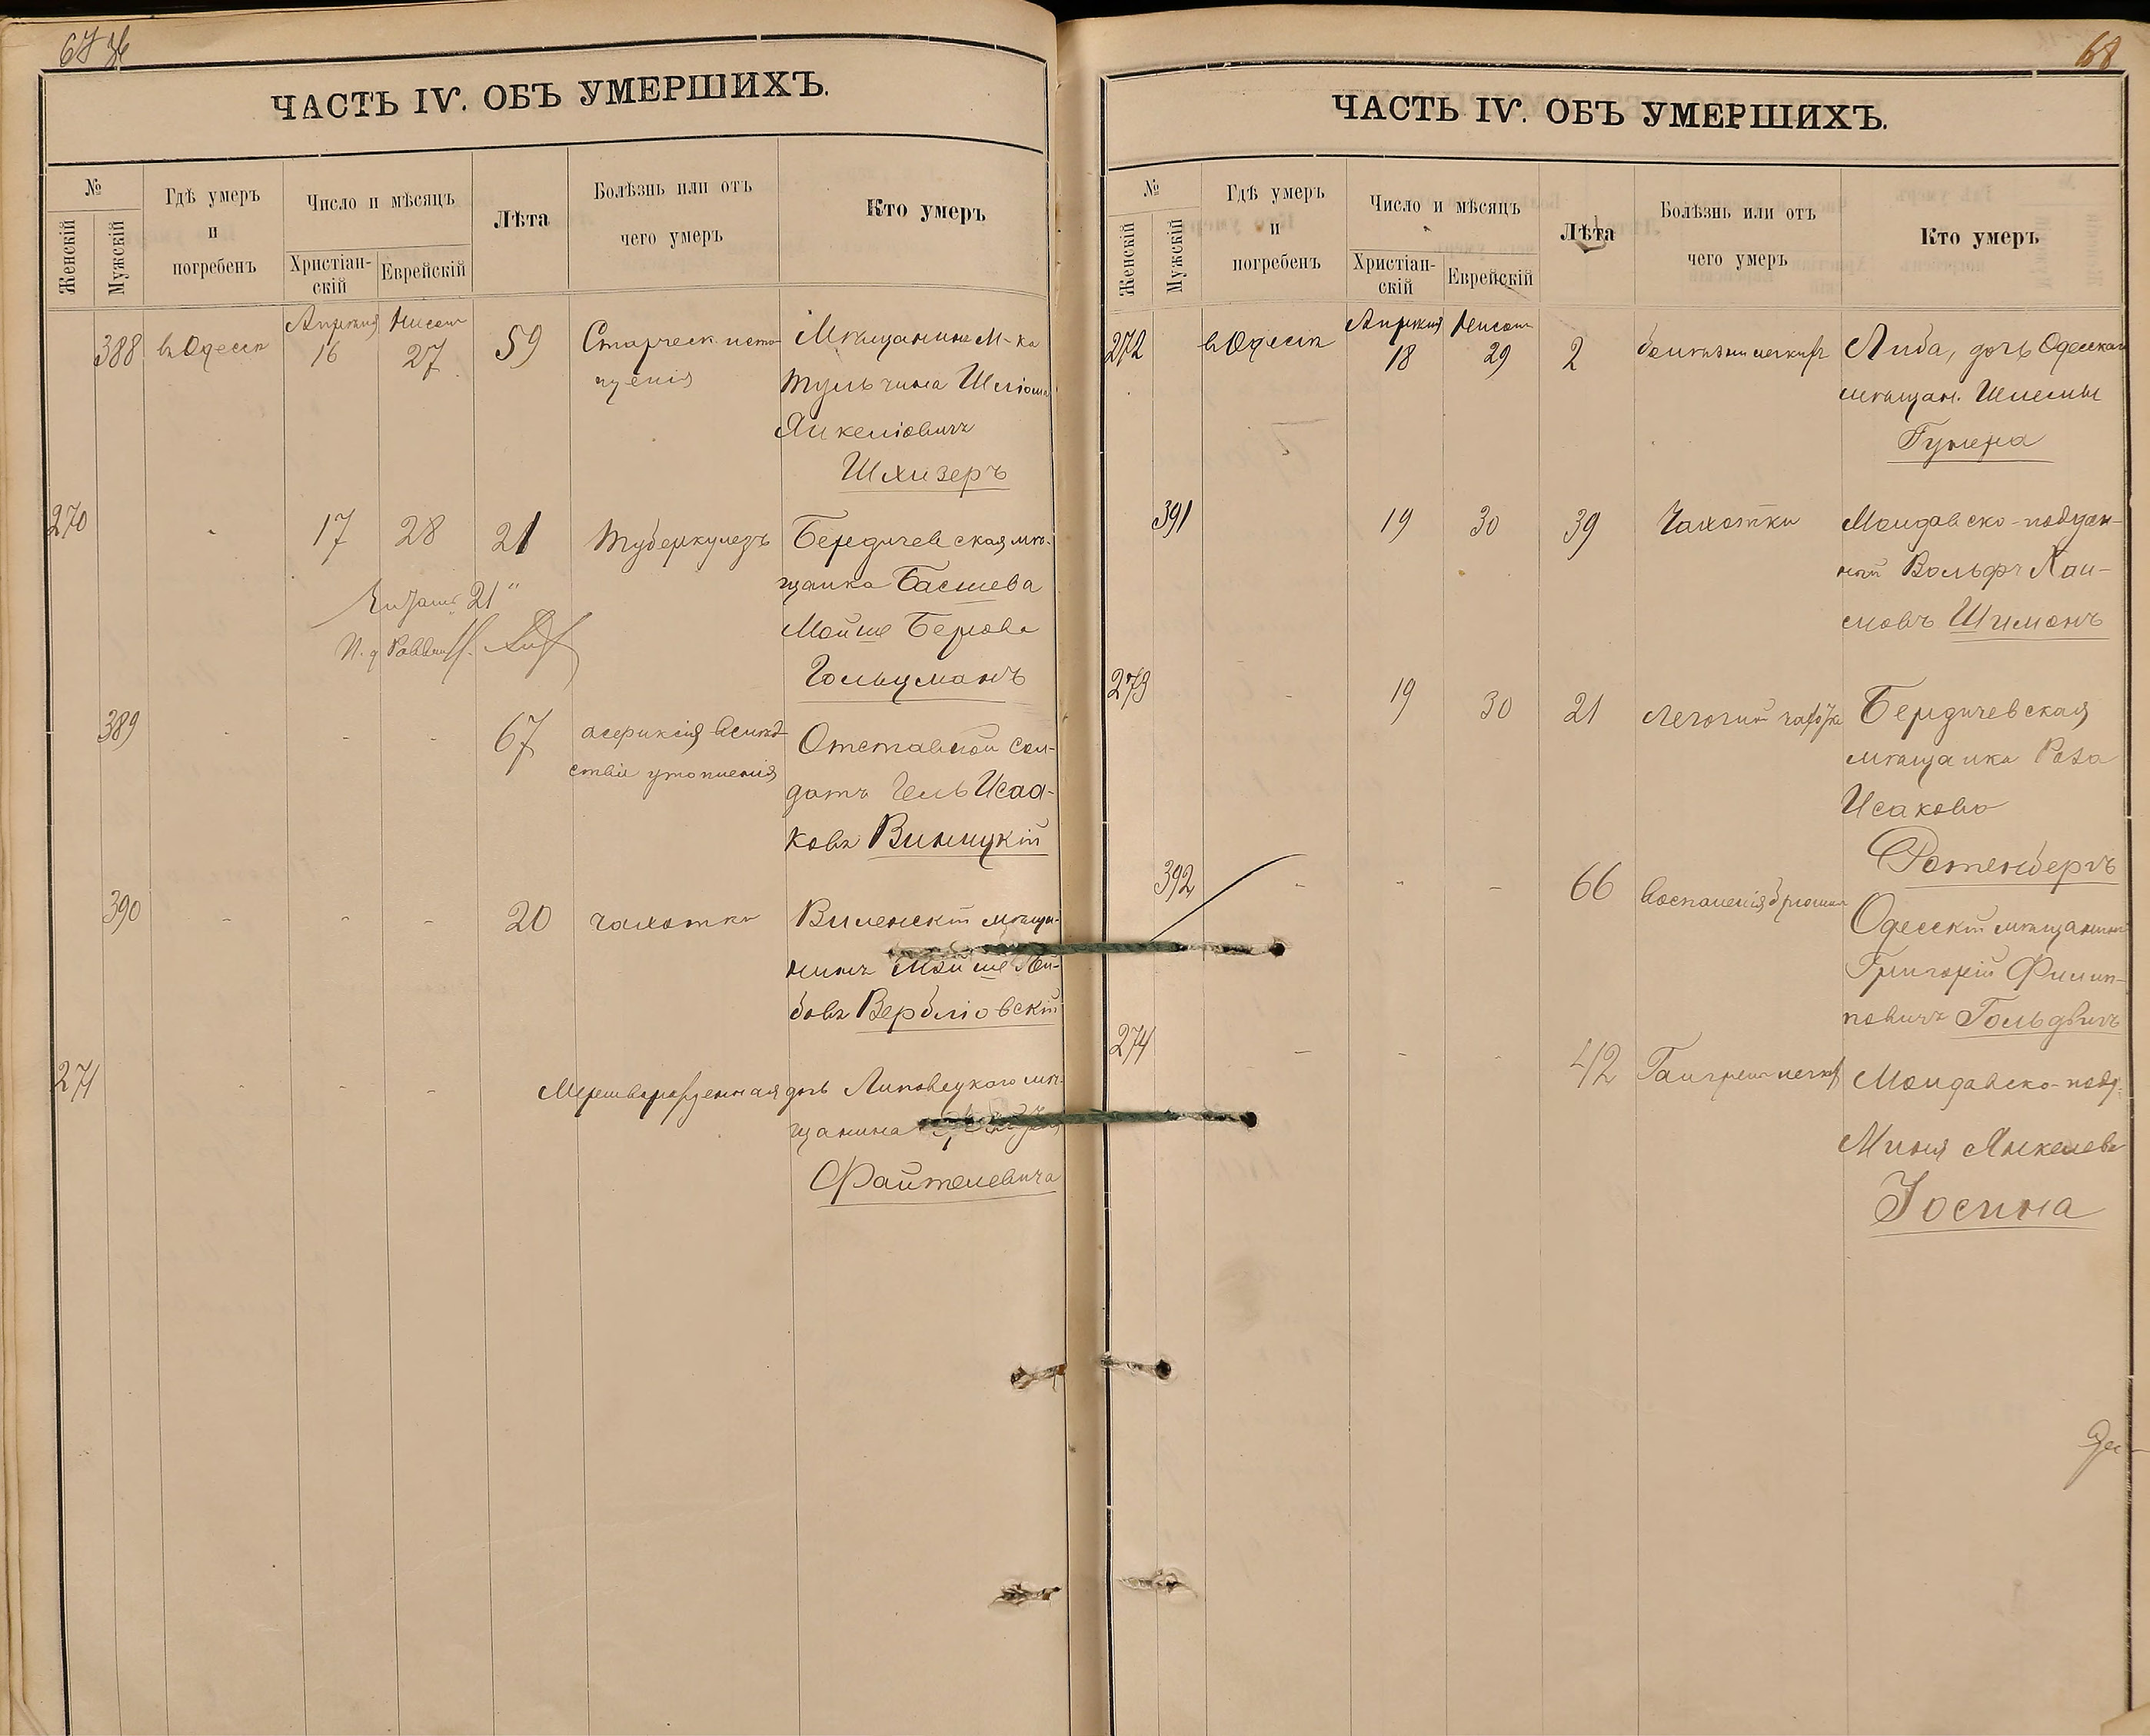 ЧАСТЬ IV. ОБЪ УМЕРШИХЪ.
№
Женскій
Мужскій
Гдѣ умеръ
и
погребенъ
Число и мѣсяцъ
Христіан-
скій
Еврейскій
Лѣта
Болѣзнь или отъ
чего умеръ
Кто умеръ
388 въ Одессѣ Апрѣля 16 Нисонъ 27 59 Старческ. исто-
щенія
Мѣщанинъ М-ка
Тульчина Шлиома
Янкелiовичъ
Шхизеръ
270 17 28 21 Туберкулезъ Бердичевская мѣ-
щанка Басшева
Мойше Берова
Гольцманъ
21
389 - - - 67 асфиксія вслѣд-
ствіе утопленія
Отставной сол-
датъ Гель Исаа-
ковъ Виницкій
390 - - - 20 чахотки Виленскій мѣща-
нинъ Мойше Лей-
бовъ Вербліовскій
271 - - - Мертворожденная дочь Липовецкаго мѣ-
щанина
Файтелевича
68
ЧАСТЬ IV. ОБЪ УМЕРШИХЪ.
№
Женскій
Мужскій
Гдѣ умеръ
и
погребенъ
Число и мѣсяцъ
Христіан-
скій
Еврейскій
Лѣта
Болѣзнь или отъ
чего умеръ
Кто умеръ
272 въ Одессѣ Апрѣля 18 Нисонъ 29 2 болѣзни легкихъ Либа, дочь Одесскаго
мѣщан. Шлемы
Гунера
391 19 30 39 Чахотки Молдавско-поддан-
ный Вольфъ Хаи-
мовъ Шимонъ
273 - 19 30 21 Легочной чахотки Бердичевская
мѣщанка Роза
Исакова
Ротенбергъ
392 - - - 66 Воспаленія брюшин Одесскій мѣщанинъ
Григорій Филип-
повичъ Гольдвигъ
274 - - - 42 Гангрена легкихъ Молдавско-подд.
Миня Янкелева
Іосина